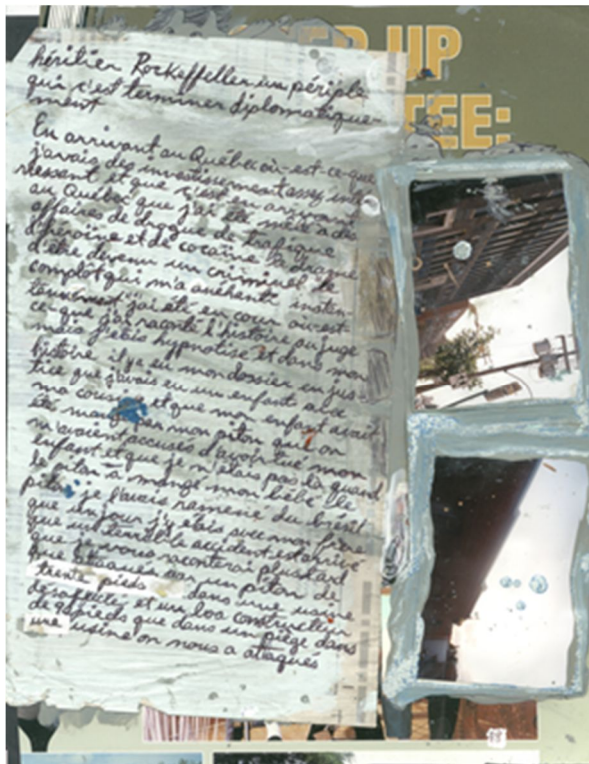 UP
TEE:
héritier Rockeffeller un périple
qui c'est terminer diplomatique-
ment
En arrivant au Québec où est-ce-que
j'avais des investissement assez inté
ressent et que c'est en arrivant
au Québec que j'ai été mêlé a des
affaires de drogue de trafique
d'héroine et de cocaïne la drogue
d'être devenu un criminel le
complot qui m'a
j'ai été en cour où est-
ce que j'ai raconté l'histoire au juge
mais j'étais hypnotisé et dans mon
histoire il y a eu mon dossier en jus-
tice que j'avais eu un enfant avec
ma cousine et que mon enfant avait
été mangé par mon piton que on
m'avaient accusés d'avoir tué mon
enfant et que je n'étais pas là quand
le piton a mangé mon bébé le
piton je l'avais ramené du brésil
que un jour j'y étais avec mon frère
que un terrible accident est arrivé
que je vous raconterai plus tard
attaqués par un piton de
trente pieds dans une usine
désafecté et un boa constricteur
de pieds que dans un piège dans
une usine on nous a attaqués